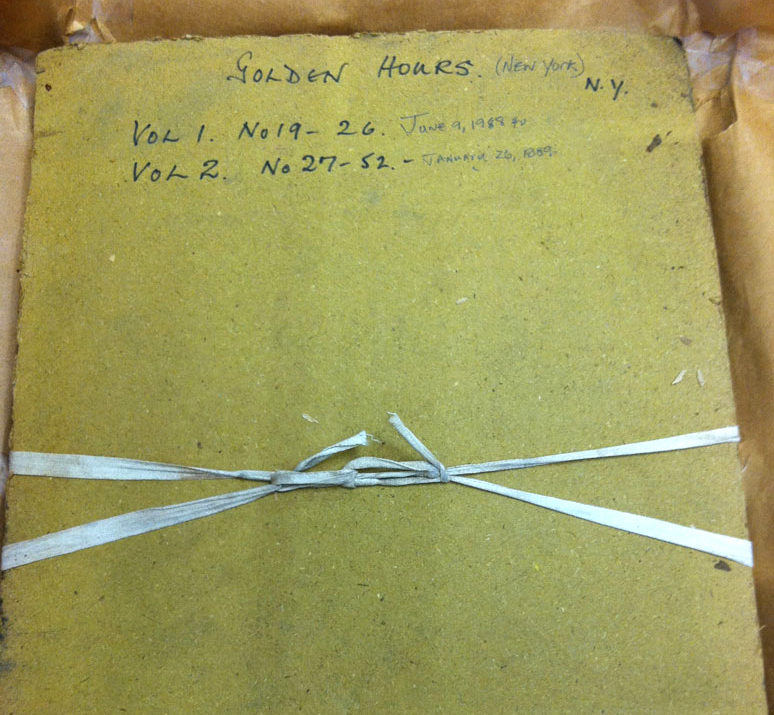 GOLDEN HOURS. (NEW YORK)
N.Y.
VOL 1. No 19 - 26. JUNE 9, 1988 to
VOL 2. No 27 - 52. - JANUARY 26, 1889.